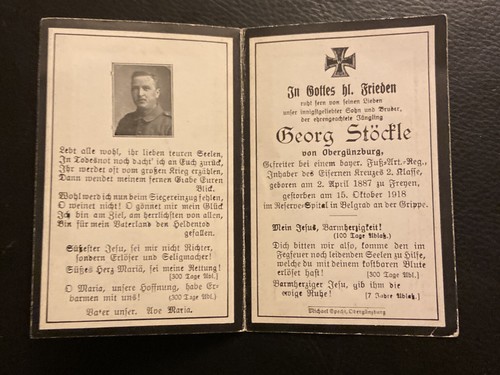 Lebt alle wohl, ihr lieben teuren Seelen,
In Todesnot noch dacht' ich an Euch zurück,
Ihr werdet oft vom großen Krieg erzählen,
Dann wendet meinem fernen Grabe Euren
Blick.
Wohl werd ich nun beim Siegereinzug fehlen,
O weinet nicht! O gönnet mir mein Glück
Ich bin am Ziel, am herrlichsten von allen,
Bin für mein Vaterland den Heldentod
gefallen.
Süßester Jesu, sei mir nicht Richter,
sondern Erlöser und Seligmacher!
Süßes Herz Mariä, sei meine Rettung!
(300 Tage Abl.)
O Maria, unsere Hoffnung, habe Er-
barmen mit uns! (300 Tage Abl.)
Vater unser. Ave Maria.
In Gottes hl. Frieden
ruht fern von seinen Lieben
unser innigstgeliebter Sohn und Bruder,
der ehrengeachtete Jüngling
Georg Stöckle
von Obergünzburg,
Gefreiter bei einem bayer. Fuß-Art.-Reg.,
Inhaber des Eisernen Kreuzes 2. Klasse,
geboren am 2. April 1887 zu Freyen,
gestorben am 15. Oktober 1918
im Reserve-Spital in Belgrad an der Grippe.
Mein Jesus, Barmherzigkeit!
(100 Tage Ablaß.)
Dich bitten wir also, komme den im
Fegfeuer noch leidenden Seelen zu Hilfe,
welche du mit deinem kostbaren Blute
erlöset hast! (300 Tage Abl.)
Barmherziger Jesu, gib ihm die
ewige Ruhe! [7 Jahre Ablaß.]
Michael Specht, Obergünzburg